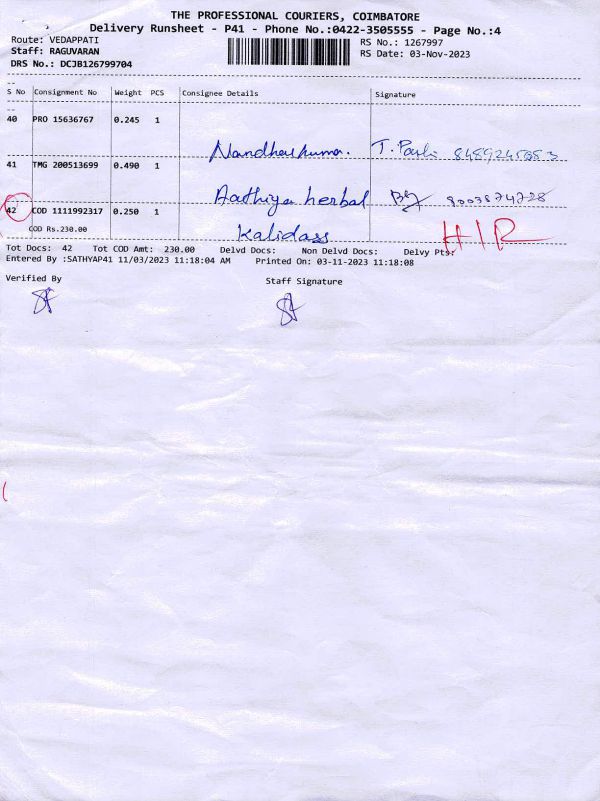 THE PROFESSIONAL COURIERS, COIMBATORE
Delivery Runsheet - P41 - Phone No.:0422-3505555 - Page No.:4
Route: VEDAPPATI
RS No.: 1267997
Staff: RAGUVARAN
RS Date: 03-Nov-2023
DRS No.: DCJB126799704
S No Consignment No Weight PCS Consignee Details Signature
40 PRO 15636767 0.245 1
Nandhakumar.
41 TMG 200513699 0.490 1
Aathiya herbal
42 COD 1111992317 0.250 1
Kalidass H/R
COD Rs.230.00
Tot Docs: 42 Tot COD Amt: 230.00 Delvd Docs: Non Delvd Docs: Delvy Pts:
Entered By :SATHYAP41 11/03/2023 11:18:04 AM Printed On: 03-11-2023 11:18:08
Verified By Staff Signature